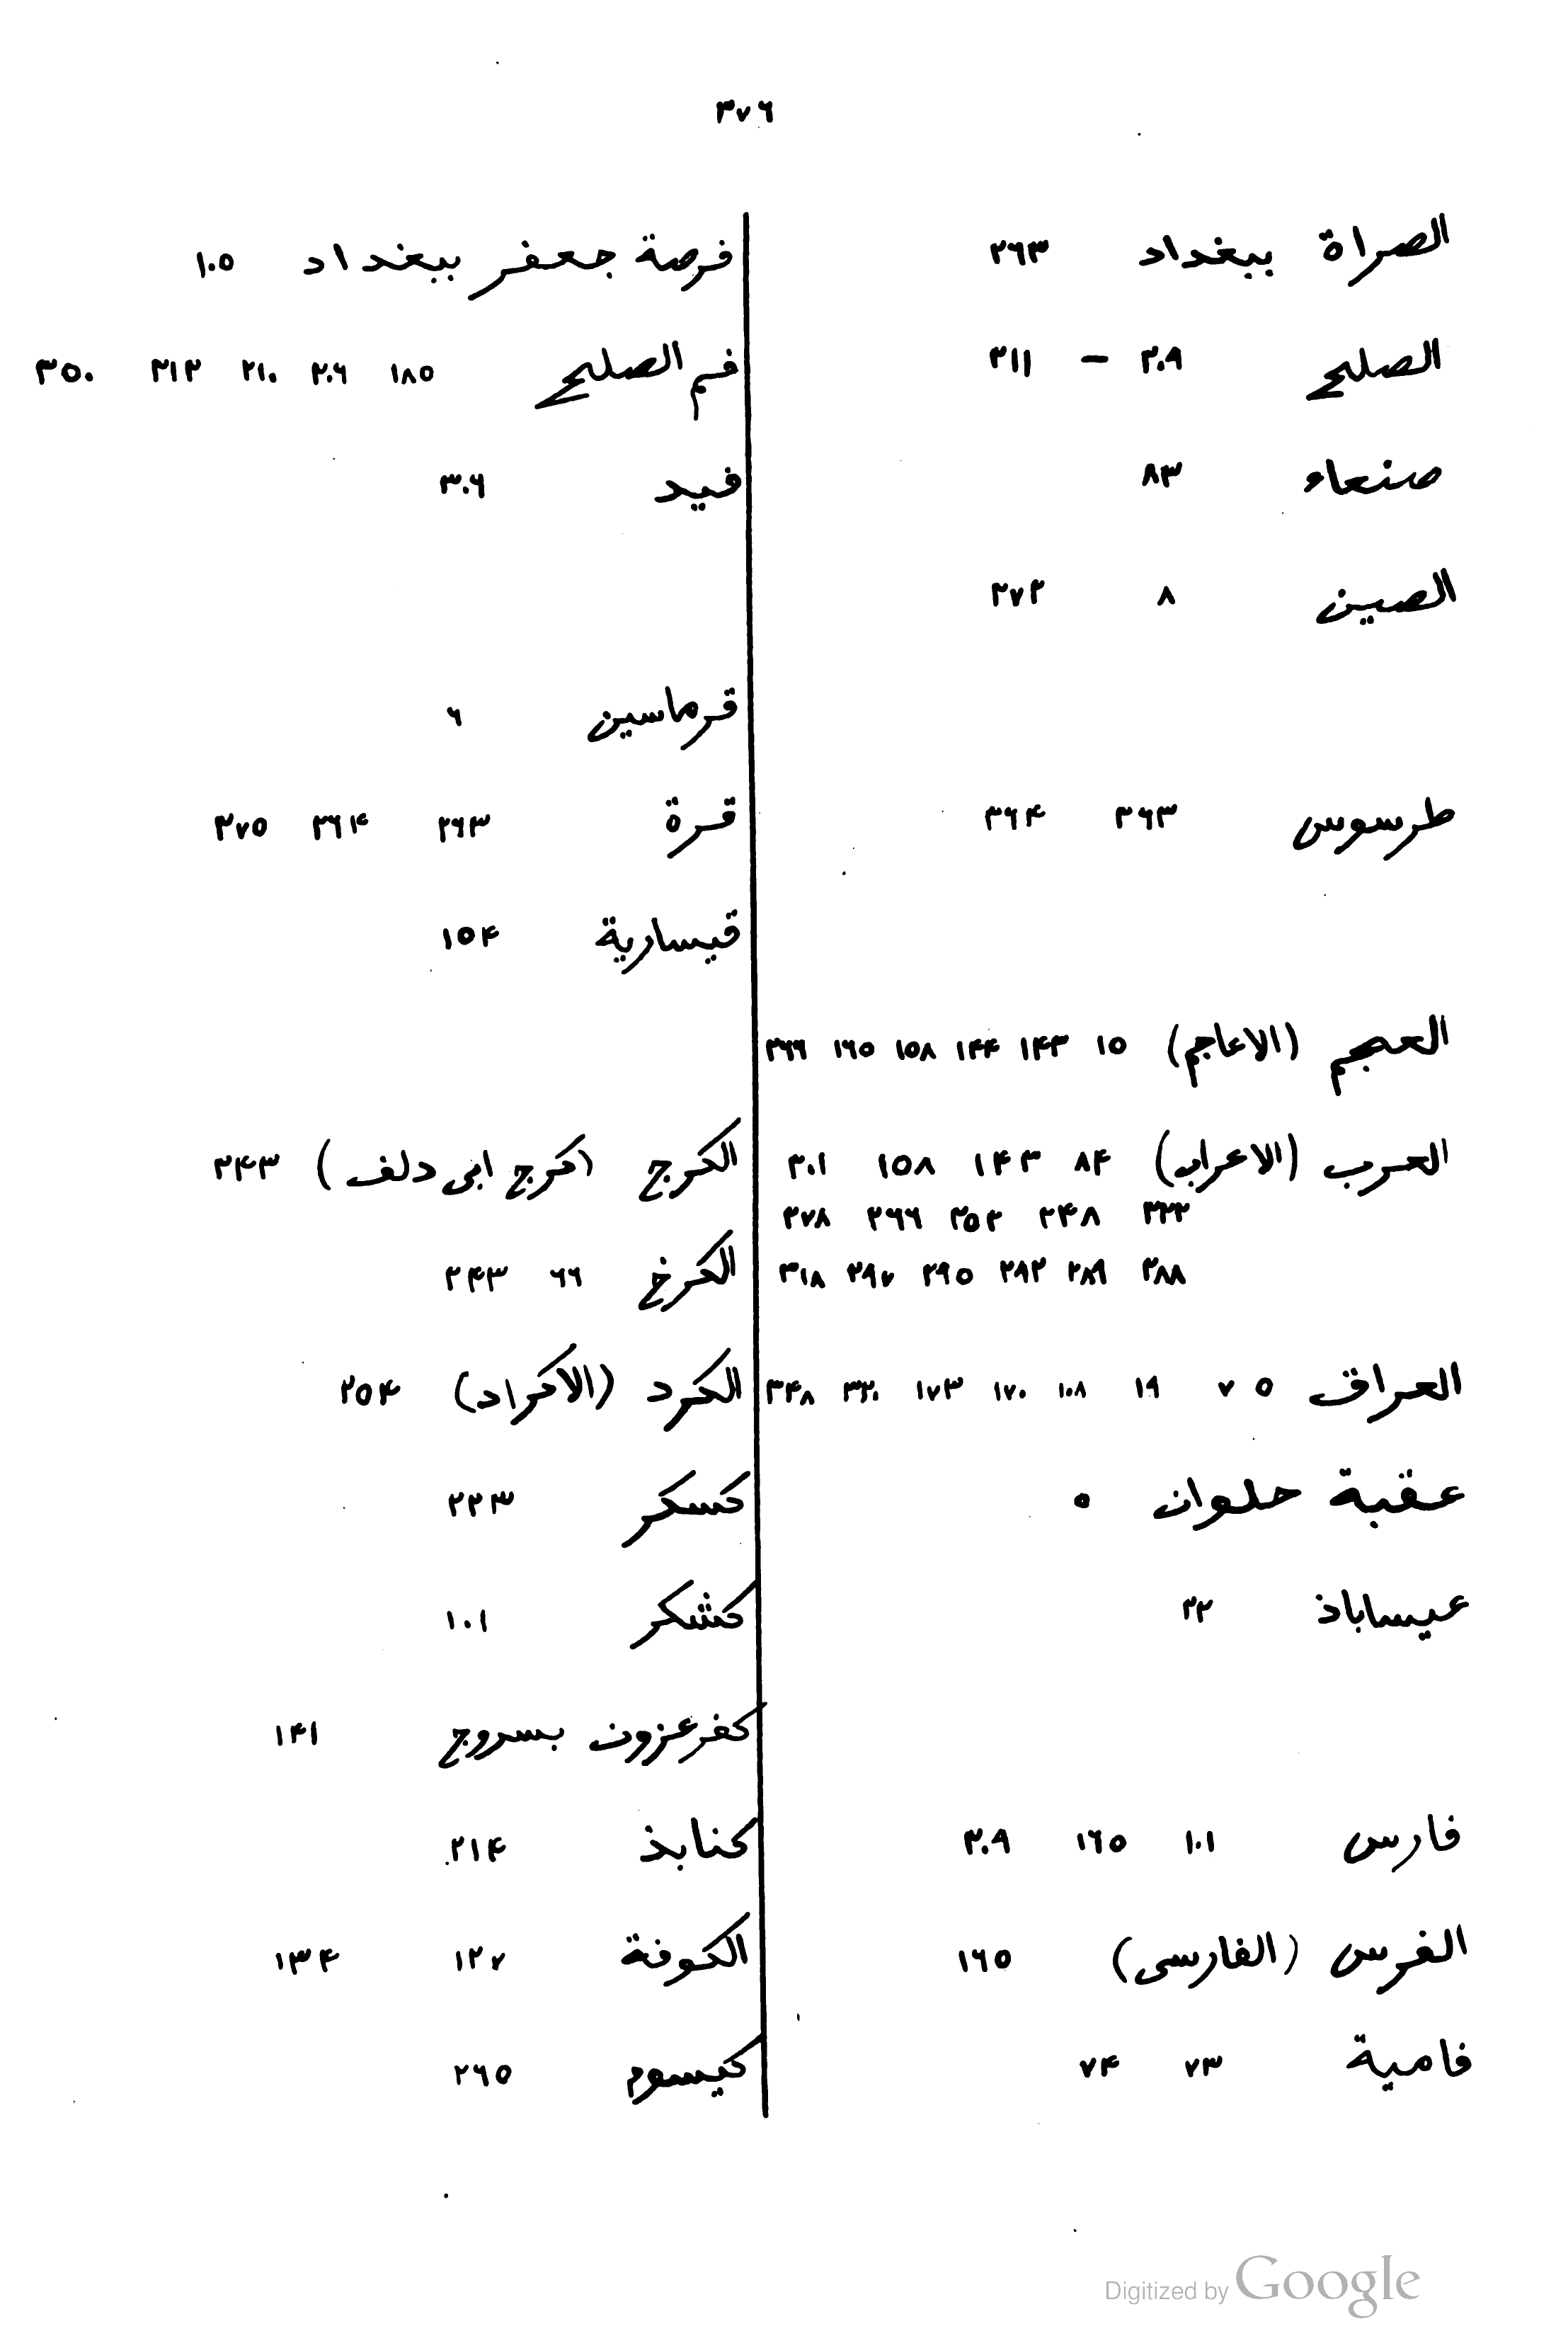 ٣٧٦
الصراة ببغداد ٢٦٣
الصلح ٢٠٩ — ٢١١
صنعاء ٨٣
الصين ٨ ٢٧٢
طرسوس ٢٦٣ ٢٦۴
العجم (الاعاجم) ١٥ ١۴٣ ١۴۴ ١٥٨ ١٦٥ ٢٦٦
العرب (الاعراب) ٨۴ ١۴٣ ١٥٨ ٢٠١
٢٢٢ ٢۴٨ ٢٥٢ ٢٦٦ ٢٧٨
٢٨٨ ٢٨٩ ٢٩٢ ٢٩٥ ٢٩٧ ٣١٨
العراق ٥ ٧ ١٩ ١٠٨ ١٧٠ ١٧٣ ٣٢٠ ٣۴٨
عقبة حلوان ٥
عيساباذ ٢٢
فارس ١٠١ ١٦٥ ٢٠٩
الفرس (الفارسى) ١٦٥
فامية ٧٣ ٧۴
فرصة جعفر ببغداد ١٠٥
فم الصلح ١٨٥ ٢٠٦ ٢١٠ ٢١٣ ٣٥٠
فيد ٣٠٦
قرماسين ٦
قرة ٢٦٣ ٢٦۴ ٢٧٥
قيسارية ١٥۴
الكرج (كرج ابى دلف) ٢۴٣
الكرخ ٦٦ ٢۴٣
الكرد (الاكراد) ٢٥۴
كسكر ٢٢٣
كشكر ١٠١
كفرعزون بسروج ١۴١
كنابذ ٢١۴
الكوفة ١٢٧ ١٣۴
كيسوم ٢٦٥
Digitized by Google